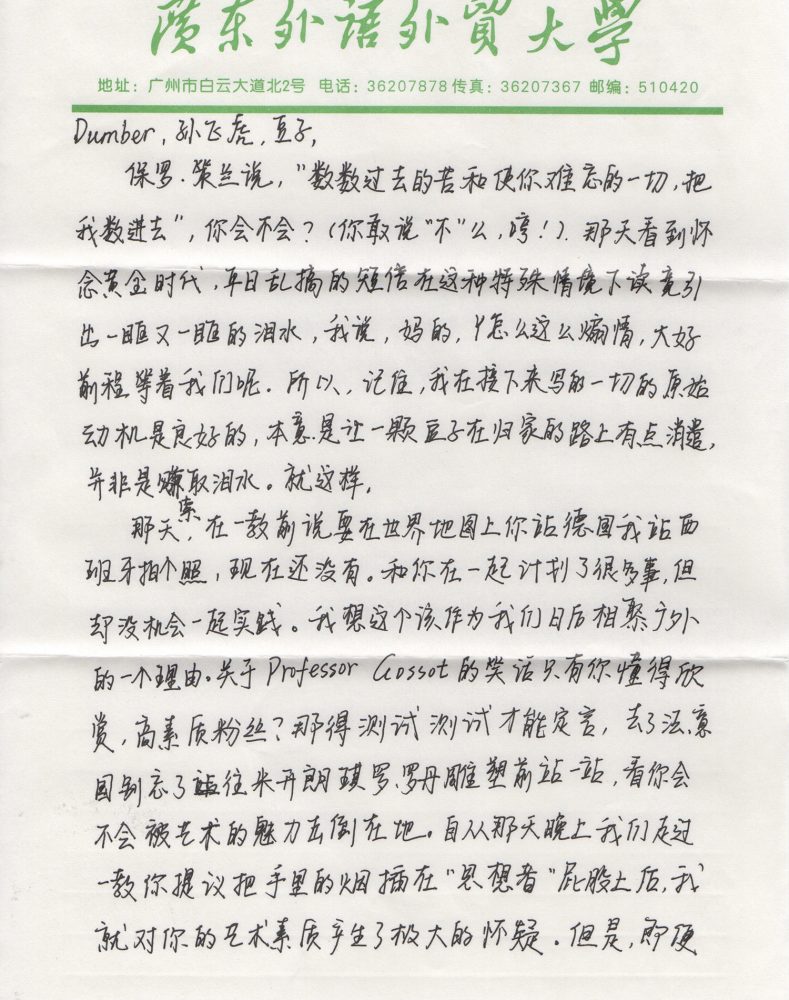 廣东外语外貿大學
地址：广州市白云大道北2号 电话：36207878 传真：36207367 邮编：510420
Dumber，孙飞虎，豆子，
保罗.策兰说，"数数过去的苦和使你难忘的一切，把
我数进去"，你会不会？（你敢说"不"么，哼！）.那天看到怀
念黄金时代，平日乱搞的短信在这种特殊情境下读竟引
出一眶又一眶的泪水，我说，妈的，丫怎么这么煽情，大好
前程等着我们呢. 所以，记住，我在接下来写的一切的原始
动机是良好的，本意是让一颗豆子在归家的路上有点消遣，
并非是赚取泪水。就这样，
那天，在一教前说要在世界地图上你站德国我站西
班牙拍个照，现在还没有。和你在一起计划了很多事，但
却没机会一起实践。我想这个该作为我们日后相聚广外
的一个理由。关于Professor Gossot的笑话只有你懂得欣
赏，高素质粉丝？那得测试测试才能定言，去了法、意
国别忘了往米开朗琪罗、罗丹雕塑前站一站，看你会
不会被艺术的魅力击倒在地。自从那天晚上我们走过
一教你提议把手里的烟插在"思想者"屁股上后，我
就对你的艺术素质产生了极大的怀疑。但是，即便